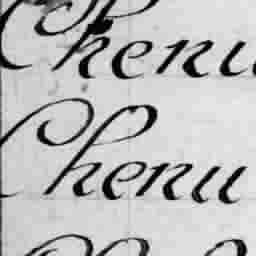 Chenu
Chenu